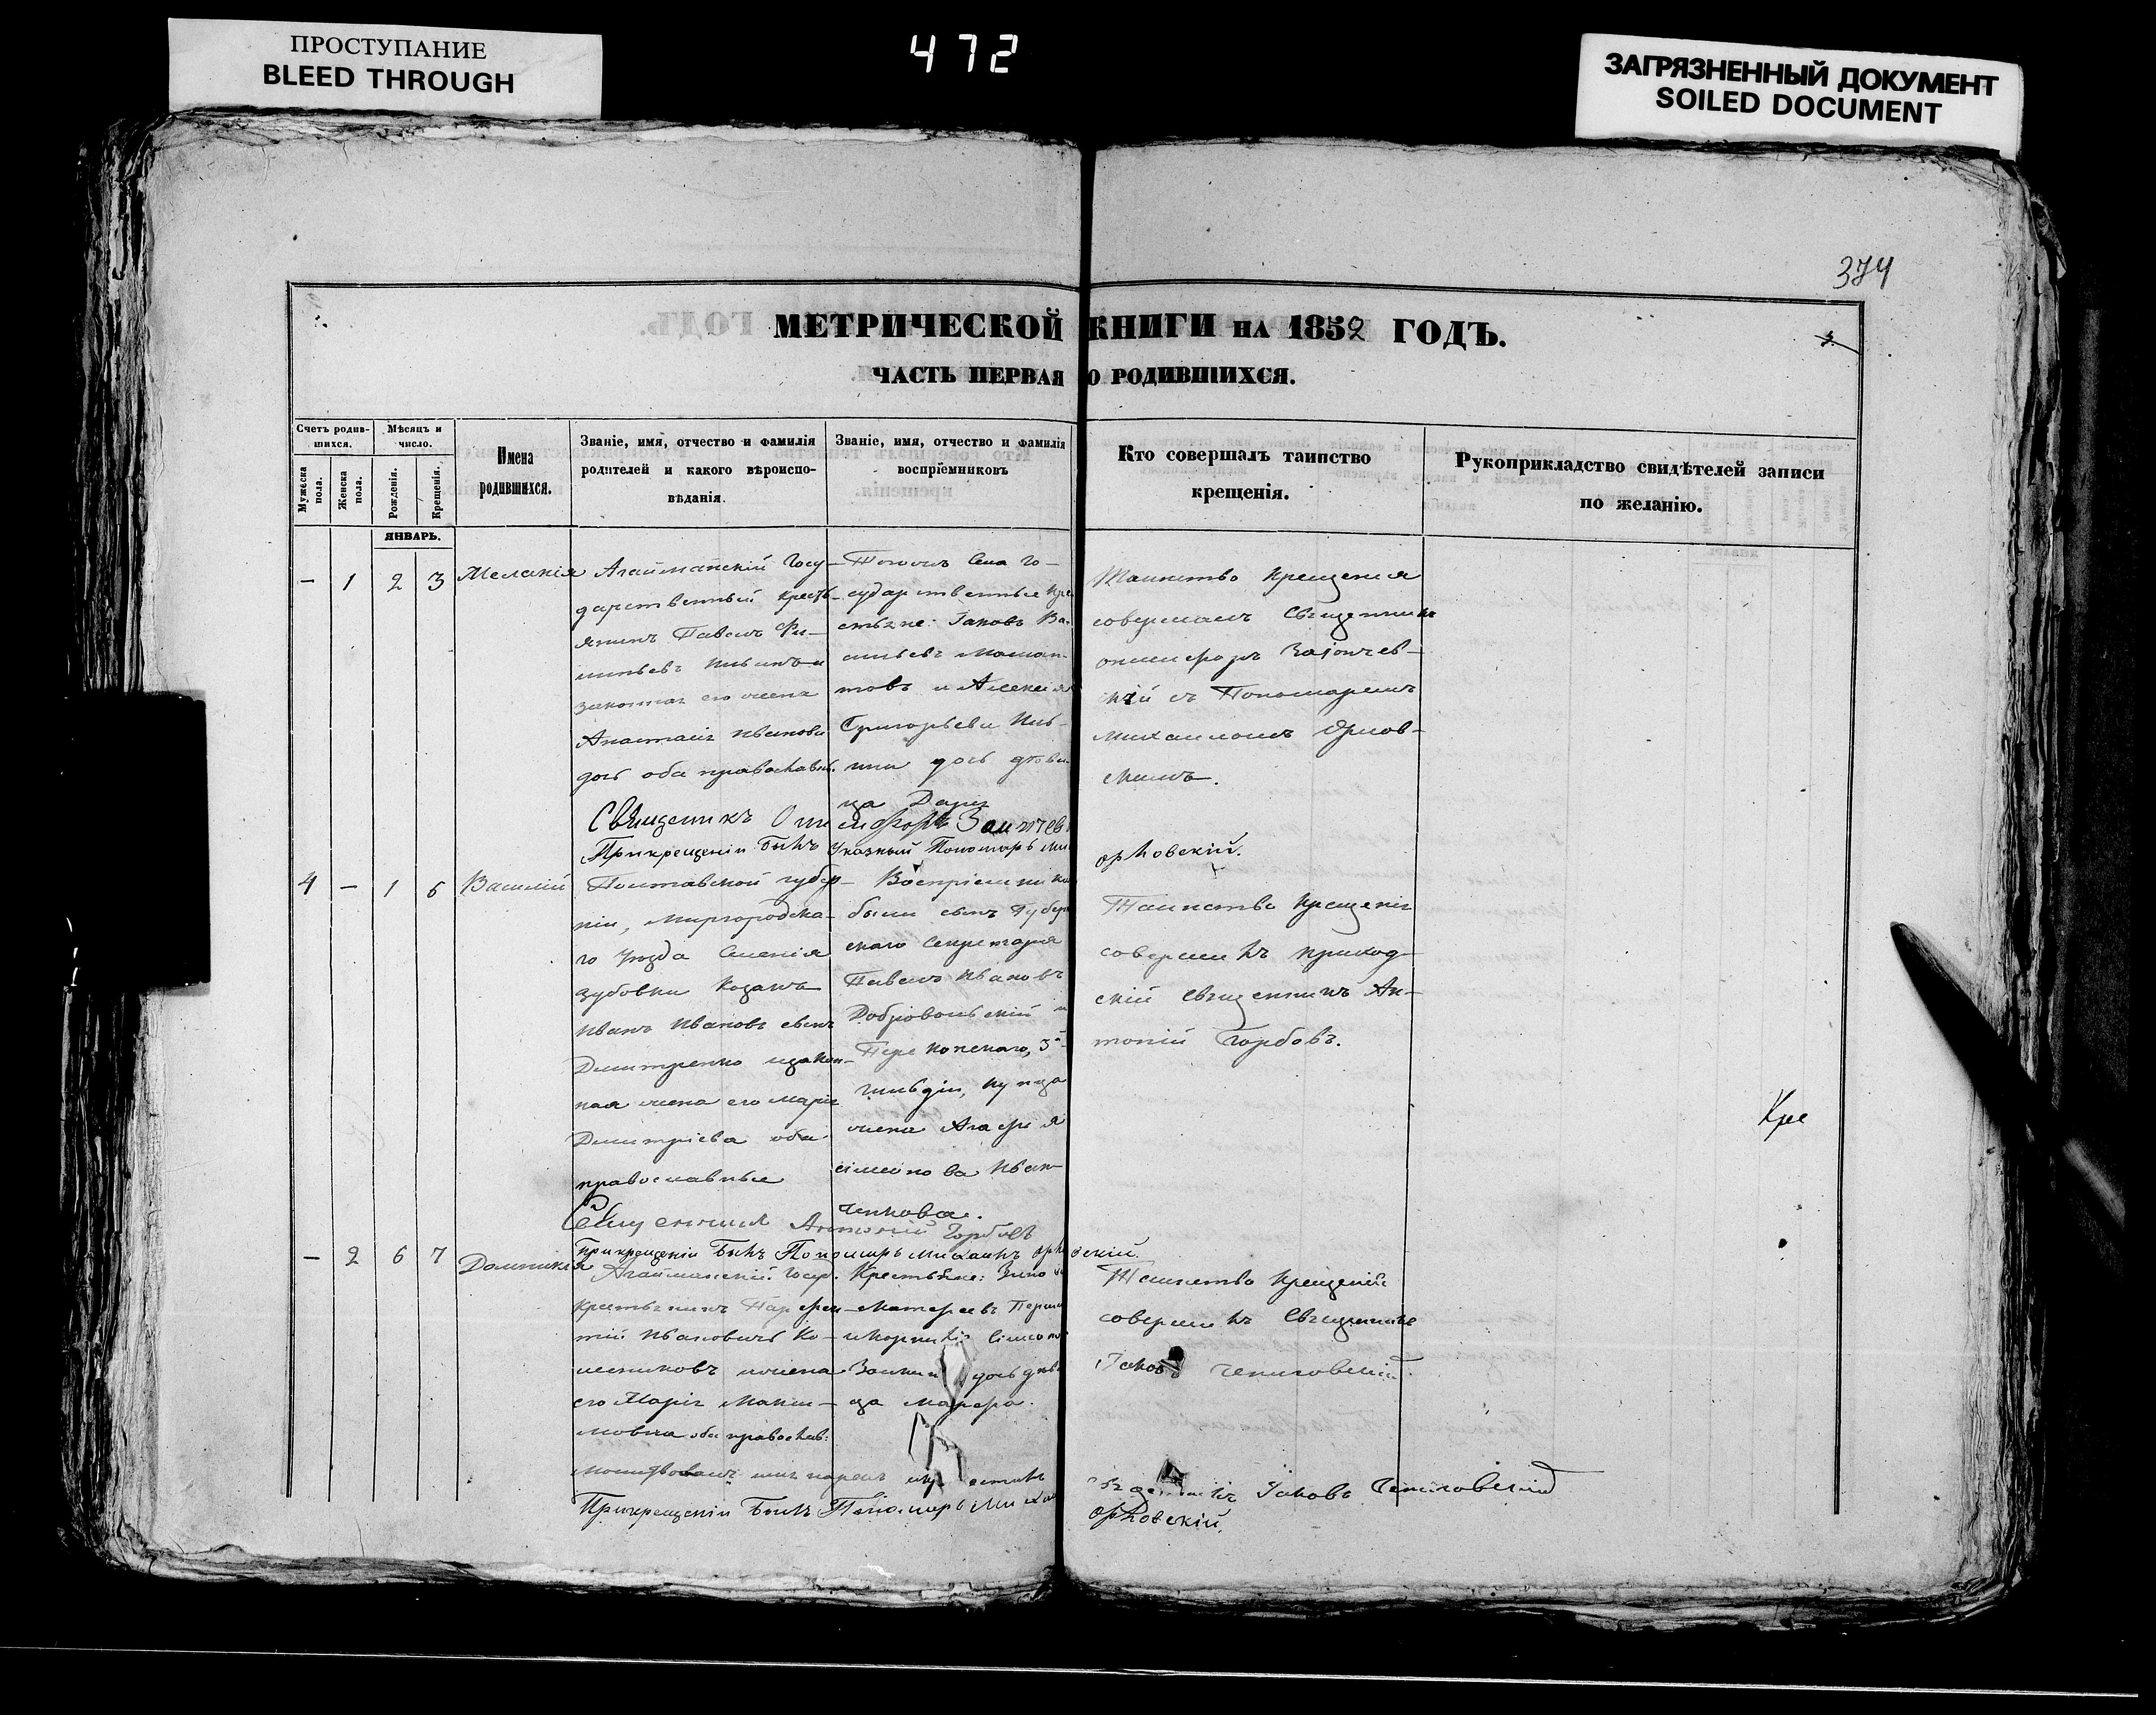 ПРОСТУПАНИЕ
BLEED THROUGH
472
ЗАГРЯЗНЕННЫЙ ДОКУМЕНТ
SOILED DOCUMENT
374
МЕТРИЧЕСКОЙ КНИГИ НА 1852 ГОДЪ.
3.
ЧАСТЬ ПЕРВАЯ О РОДИВШИХСЯ.
Счетъ родив-
шихся.
Мужеска пола.
Женска пола.
Мѣсяцъ и
число.
Рожденія.
Крещенія.
Имена
родившихся.
Званіе, имя, отчество и фамилія
родителей и какого вѣроиспо-
вѣданія.
Званіе, имя, отчество и фамилія
воспріемниковъ
Кто совершалъ таинство
крещенія.
Рукоприкладство свидѣтелей записи
по желанію.
ЯНВАРЬ.
– 1 2 3 Меланія
Агайманскій Госу-
дарственный кресть-
янинъ Павелъ Фи-
законная его жена
Анастасія Иванова
оба православн.
Тогожъ Села Го-
сударственные кре
стьяне: Іаковъ Ва-
сильевъ
и Алексія
Григорьева
ца Дарія
Таинство крещенія
совершалъ Священникъ
Онисифоръ Заіончев-
скій съ Пономаремъ
Михаиломъ Орлов-
скимъ.
Священикъ Онисифоръ
Прикрещеніи Былъ Указный Пономарь Ми
орловскій.
4 – 1 6 Василій
Полтавской губер-
ніи, Миргородска-
го Уѣзда Селенія
Зубовки Козакъ
Иванъ Ивановъ сынъ
Дмитренко и закон-
ная жена его Марія
Димитріева оба
православные
Воспріемники
были сынъ Губерн
скаго Секретаря
Павелъ Ивановъ
Добровольскій и
Перекопскаго, 3й
гильдіи, купца
жена Агафія
Симионова Иван-
ченкова.
Таинство крещенія
совершилъ приход-
скій священникъ Ан-
тоній Горбовъ.
Кре
Священникъ Антоній Горбовъ
Прикрещеніи Былъ Пономарь Михаилъ орл
овскій.
– 2 6 7 Домникія
Агайманскій Госуд.
Крестьянинъ Парфен-
тій Ивановичъ Ко-
лесниковъ и жена
его Марія Макси-
мовна оба православ:
Крестьяне:
Матфеевъ
и Корнилія Симіоно
ца Марфа.
Таинство крещенія
совершилъ Священникъ
Іаковъ Чепиговскій.
молитвовалъ имя нарекъ и крестилъ
Іаковъ Чепиговскій
Прикрещеніи Былъ Пономарь Миха
орловскій.